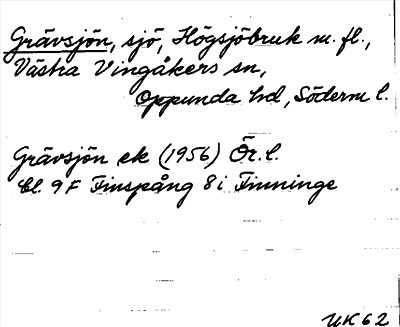 Grävsjön, sjö, Högsjöbruk m. fl.,
Västra Vingåkers sn,
Oppunda hd, Söderm l.
Grävsjön ek (1956) Ör. l.
bl. 9F Finspång 8i Finninge
UK62